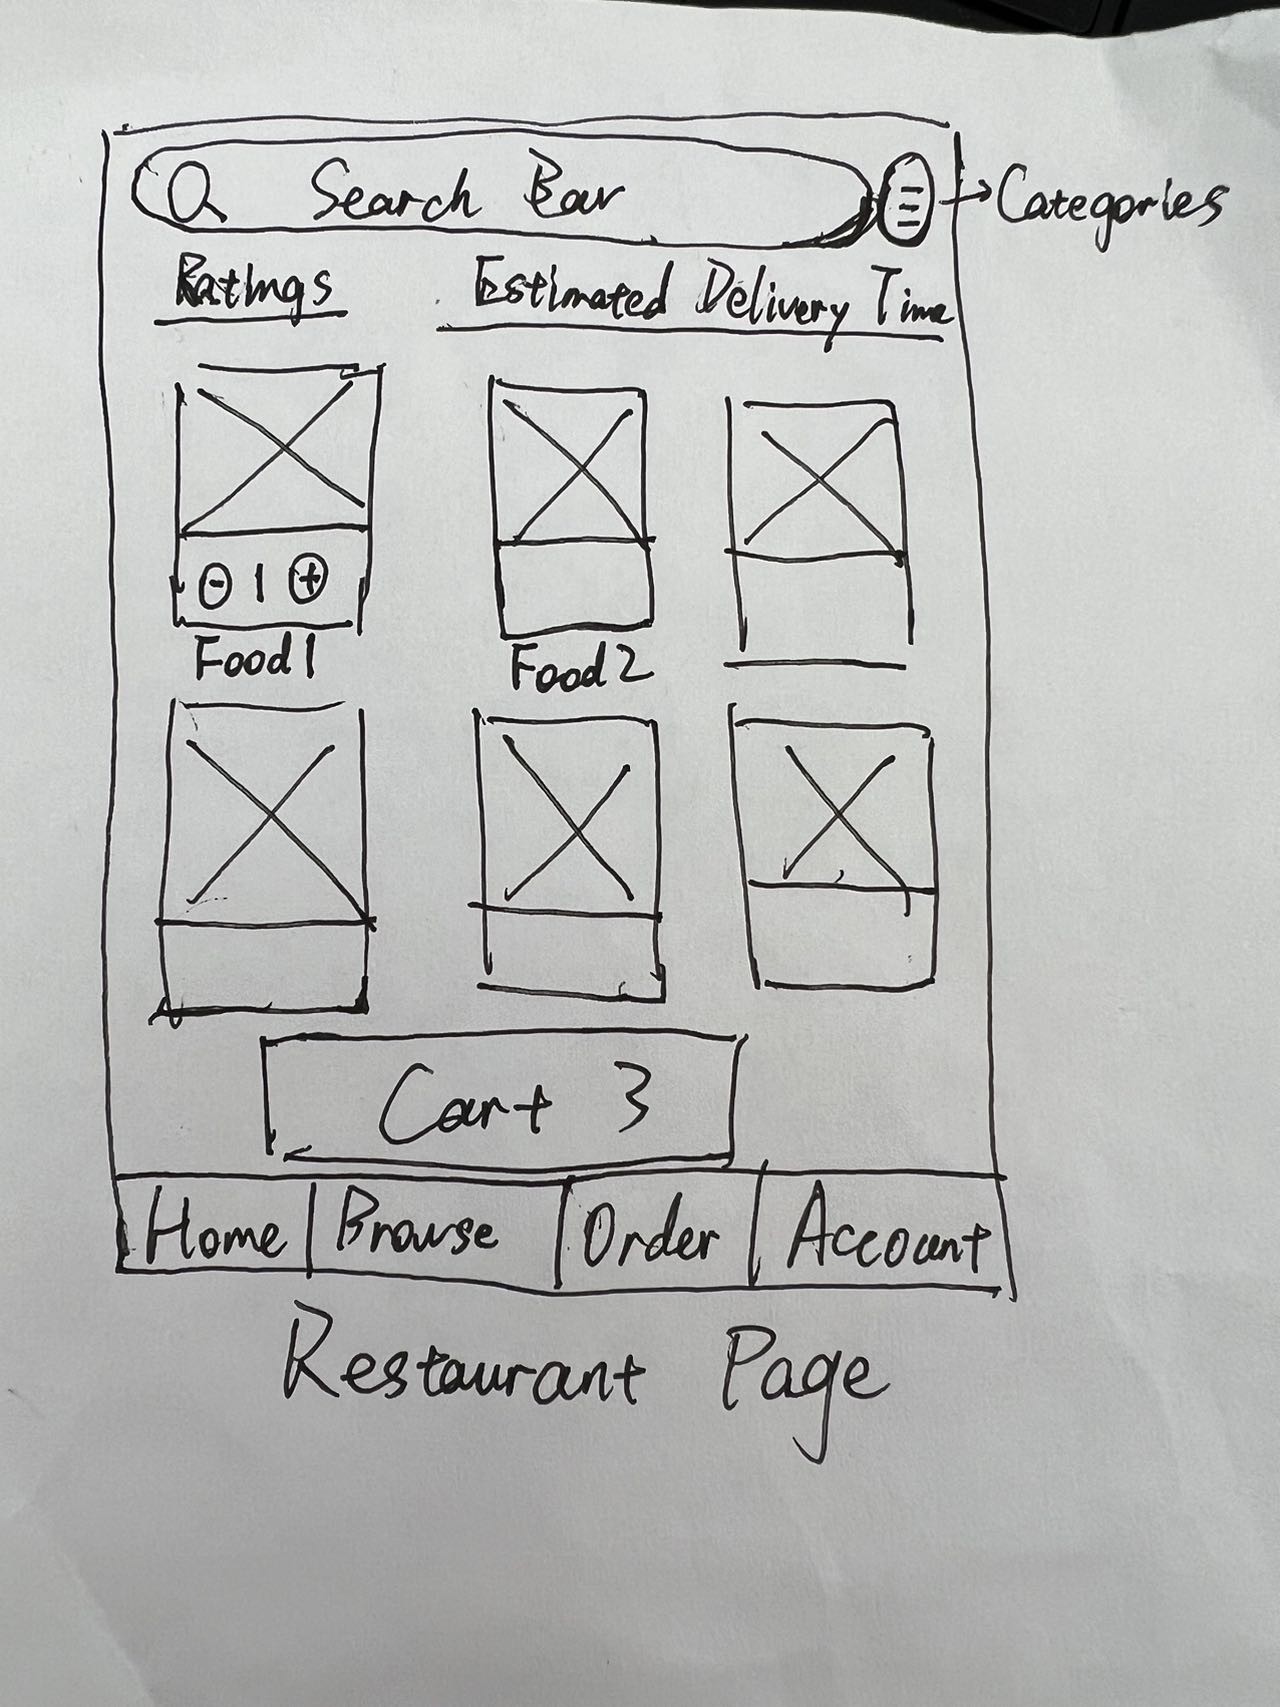 Search Bar
Categories
Ratings Estimated Delivery Time
- 1 +
Food 1 Food 2
Cart 3
Home Browse Order Account
Restaurant Page